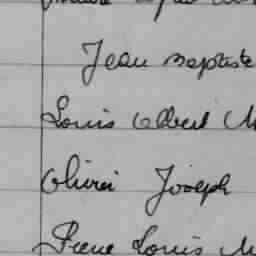 Jean Baptiste
Louis Albert M
Olivier Joseph
Pierre Louis M